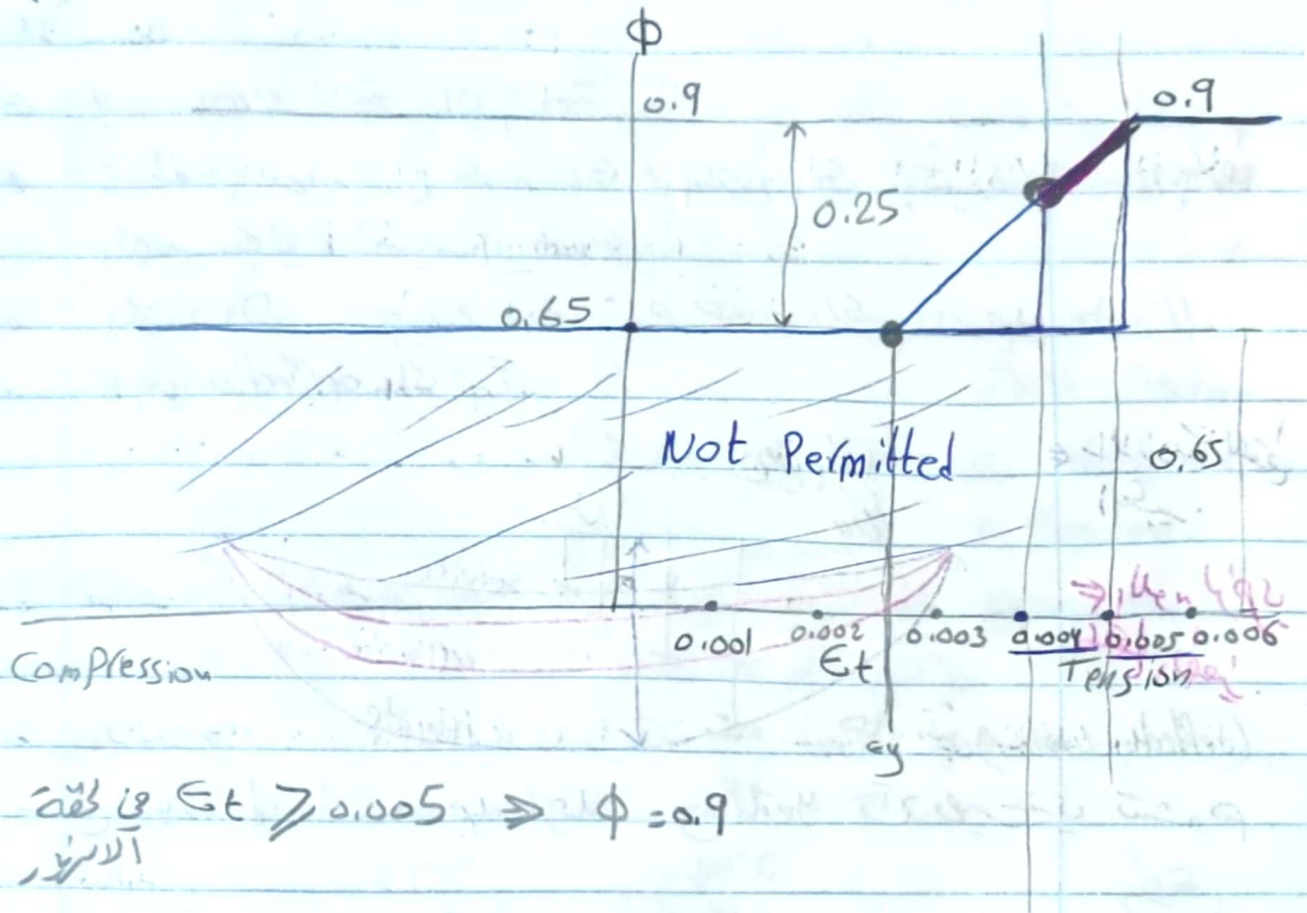 Φ
0.9
0.9
0.25
0.65
Not Permitted
0.65
0.001
0.002
0.003
0.004
0.005
0.006
Compression
Єt
Tension
єy
Єt ⩾ 0.005 ⇒ ϕ = 0.9